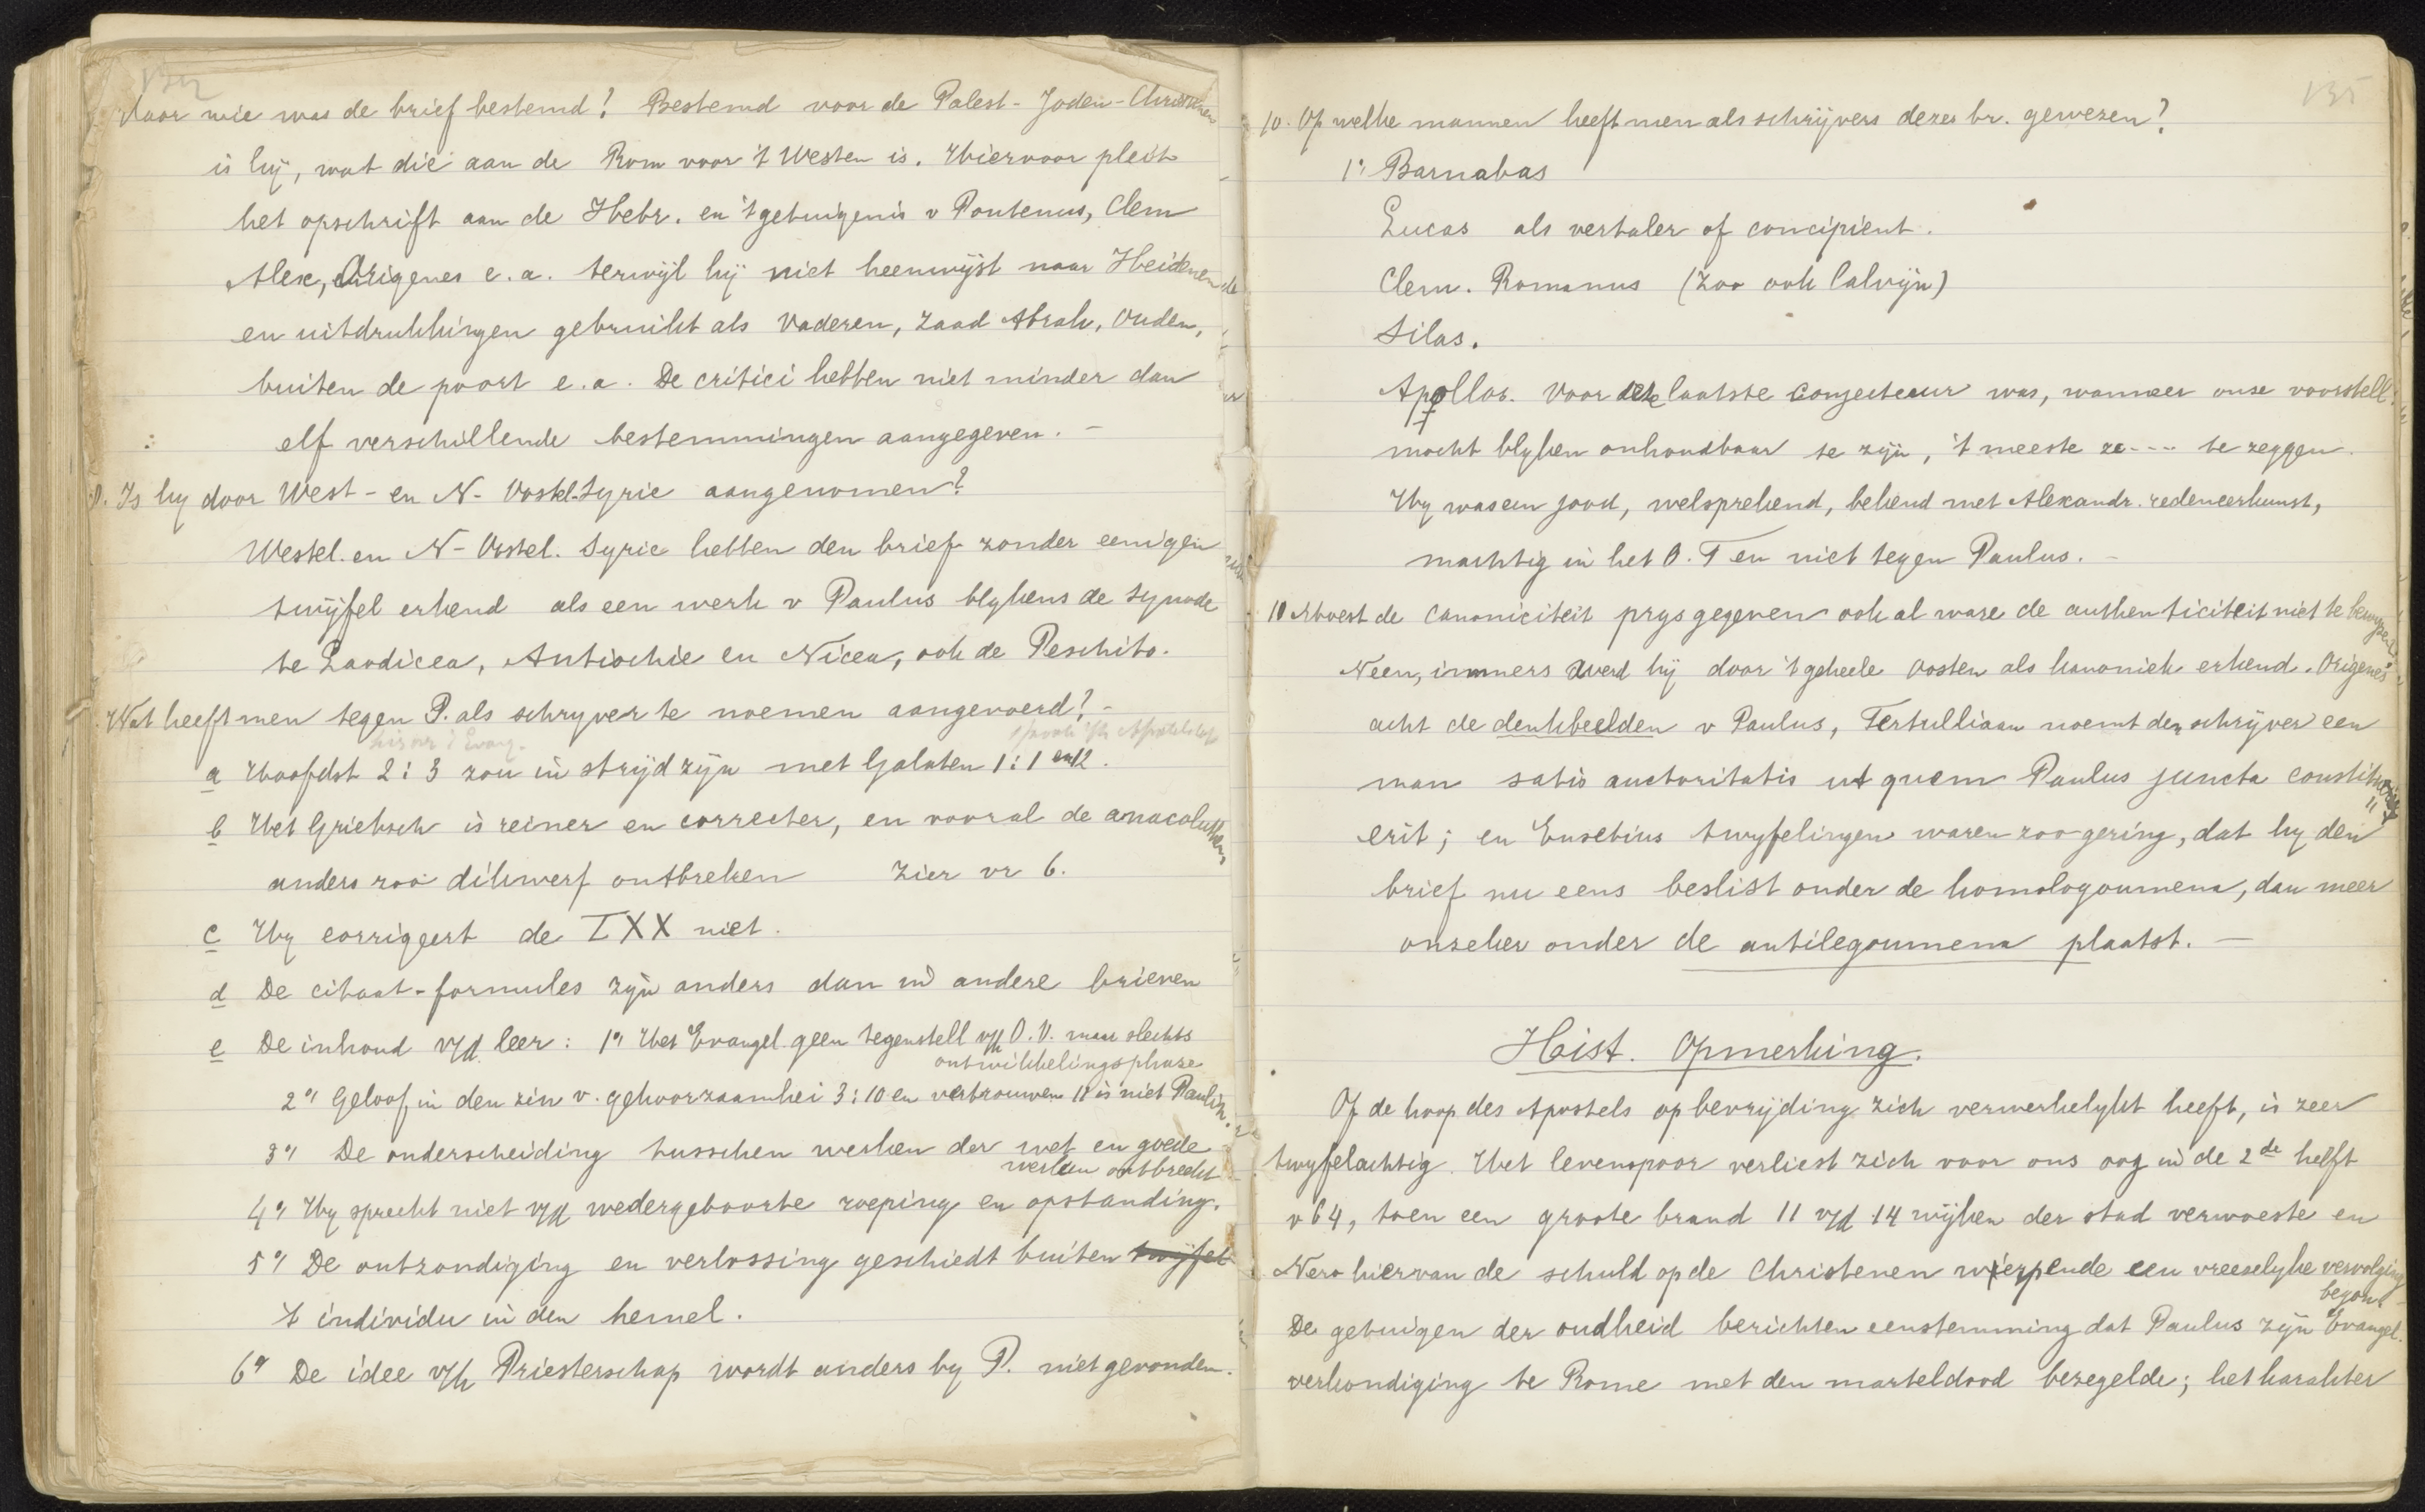 134
Voor wie was de brief bestemd? Bestemd voor de Palest- Joden-Christenen
is hij, wat die aan de Rom voor 't Westen is. Hiervoor pleit
het opschrift aan de Hebr. en 't getuigenis v Pontenus, Clem
Alex, Origenes e.a. terwijl hij niet heenwijst naar Heidenen
en uitdrukkingen gebruikt als Vaderen, zaad Abrah, Ouden,
buiten de poort e.a. De critici hebben niet minder dan
elf verschillende bestemmingen aangegeven. -
Is hy door West- en N- Oostel-Syrie aangenomen?
Westel. en N- Oostel. Syrie hebben den brief zonder eenigen
twijfel erkend als een werk v Paulus blykens de Synode
te Laodicea, Antiochie en Nicea, ook de Peschito.
Wat heeft men tegen P. als schryver te noemen aangevoerd? -
a Hoofdst 2:3 zou in strijd zijn met Galaten 1:1 en 12.
b Het Grieksch is reiner en correcter, en vooral de anacoluthen
anders zoo dikwerf ontbreken zier vr 6.
c Hy corrigeert de LXX niet.
d De citaat-formules zijn anders dan in andere brieven
e De inhoud v/d leer: 1° Het Evangel. geen tegenstell v/h O.V. maar slechts
ontwikkelingsphase
2° Geloof in den zin v. gehoorzaamhei 3:10 en vertrouwen 11 is niet Paulin.
3° De onderscheiding tusschen werken der wet en goede
werken ontbreekt
4° Hy spreekt niet v/d wedergeboorte roeping en opstanding.
5° De ontzondiging en verlossing geschiedt buiten twijfel
't individu in den hemel.
6° De idee v/h Priesterschap wordt anders by P. niet gevonden.
135
10. Op welke mannen heeft men als schrijvers dezes br. gewezen?
1° Barnabas
Lucas als vertaler of concipient.
Clem. Romanus (zoo ook Calvijn)
Silas.
Apollos. Voor deze laatste conjecteuur was, wanneer onze voorstell.
mocht blyken onhoudbaar te zijn, 't meeste ze---- te zeggen.
Hy was een jood, welsprekend, bekend met Alexandr. redeneerkunst,
machtig in het O.T en niet tegen Paulus. -
11 Moest de canoniciteit prys gegeven ook al ware de authenticiteit niet te bewyzen?
Neen, immers werd hij door 't geheele Oosten als kanoniek erkend. Origenes
acht de denkbeelden v Paulus, Tertulliaan noemt den schrijver een
man satis auctoritatis ut quem Paulus juncta
erit; en Eusebius twyfelingen waren zoo gering, dat hy den
brief nu eens beslist onder de homologoumena, dan meer
onzeker onder de antilegoumena plaatst. -
Hist. Opmerking.
Of de hoop des Apostels op bevrijding zich verwerkelykt heeft, is zeer
twyfelachtig. Het levenspoor verliest zich voor ons oog in de 2de helft
v 64, toen een groote brand 11 v/d 14 wijken der stad verwoeste en
Nero hiervan de schuld op de Christenen wierpende een vreeselyke vervolging
begon.
De getuigen der oudheid berichten eenstemming dat Paulus zijn Evangel.
verkondiging te Rome met den marteldood bezegelde; het karakter